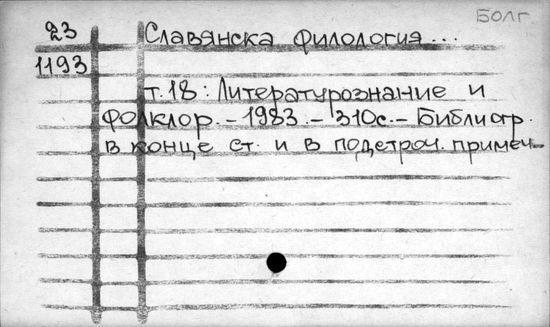 Болг.
23 Славянска филология...
1193
т.18: Литературознание и
фолклор. – 1983. – 310с. – Библиогр.
в конце ст. и в подстроч. примеч.